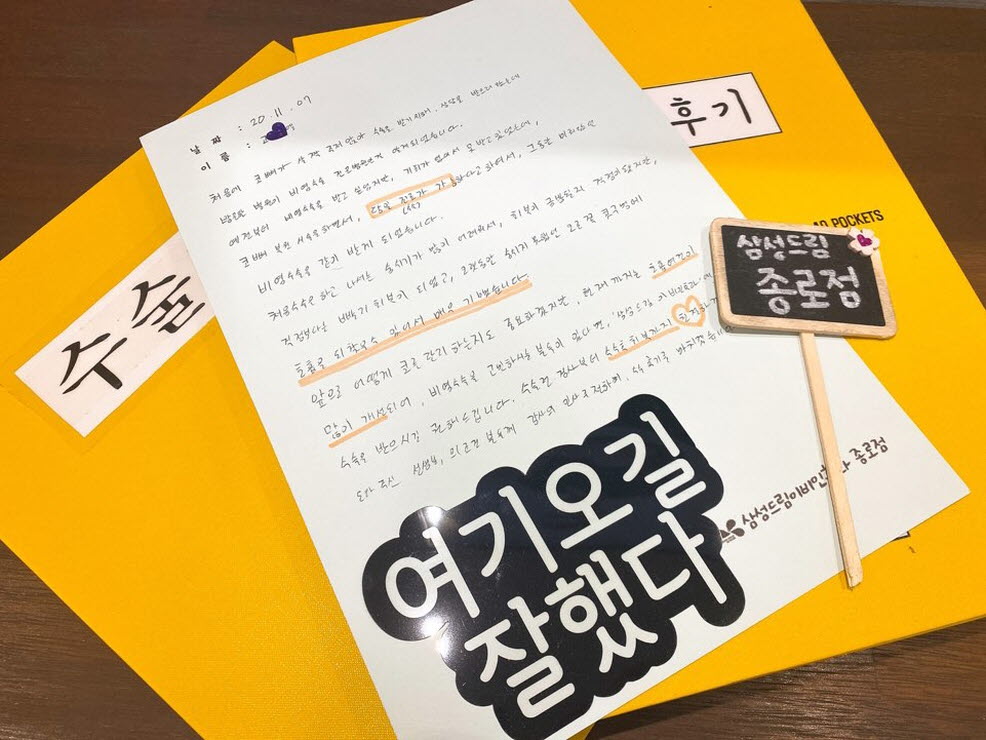 날 짜 : 20.11.07
이 름 :
처음에 코뼈가 살짝 휘지 않아 수술을 받기 위해, 상담을 받으러 왔는데
받고 병원이 비염수술을 전문병원인걸 알게되었습니다.
예전부터 비염수술을 받고 싶었지만, 기회가 없어서 못받고 있었는데,
코뼈 복원 시술을 하면서, 당일 진료가 가능하다고 하여서, 그동안 미뤄왔던
비염수술을 같이 받게 되었습니다.
처음수술 하고 나서는 숨쉬기가 많이 어려워서, 회복이 금방될지 걱정이 되었지만,
걱정보다는 빠르게 회복이 되었고, 오랫동안 숨쉬기 힘들었던 오른쪽 콧구멍에
호흡을 되찾을수 있어서 매우 기뻤습니다.
앞으로 어떻게 코를 관리 하는지도 중요하겠지만, 현재 까지는 호흡여건이
많이 개선되어, 비염수술을 고민하시는 분들이 있다면, '삼성드림 이비인후과'에
수술을 받으시길 권해드립니다. 수술전 검사부터 수술후 회복까지
도와 주신 선생님, 의료진 분들께 감사의 인사 전하며, 후기를 마치겠습니다
수술
후기
AD POCKETS
삼성드림
종로점
삼성드림이비인후과 종로점
여기오길
잘했다